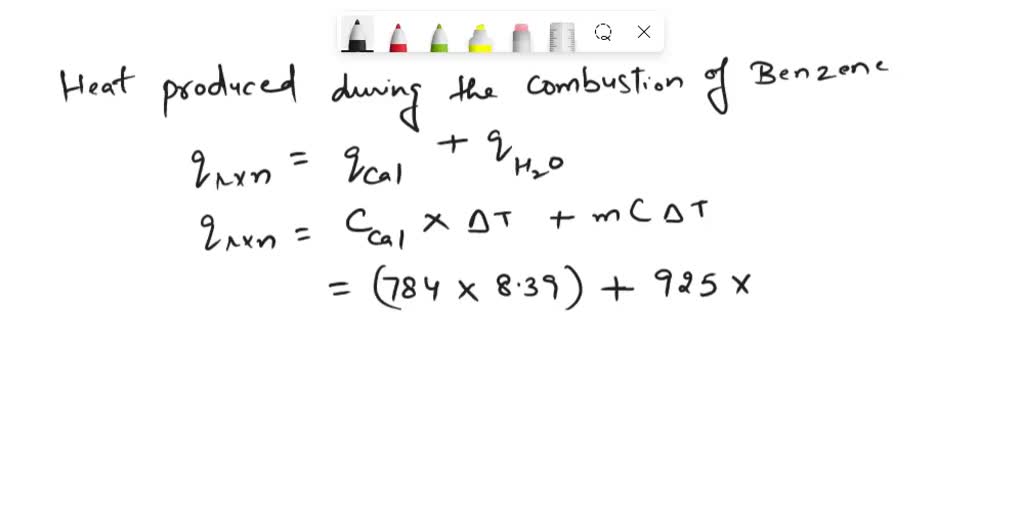 Heat produced during the combustion of Benzene
qrxn = qcal + qH₂O
qrxn = Ccal × ΔT + mCΔT
= (784 × 8.39) + 925 ×